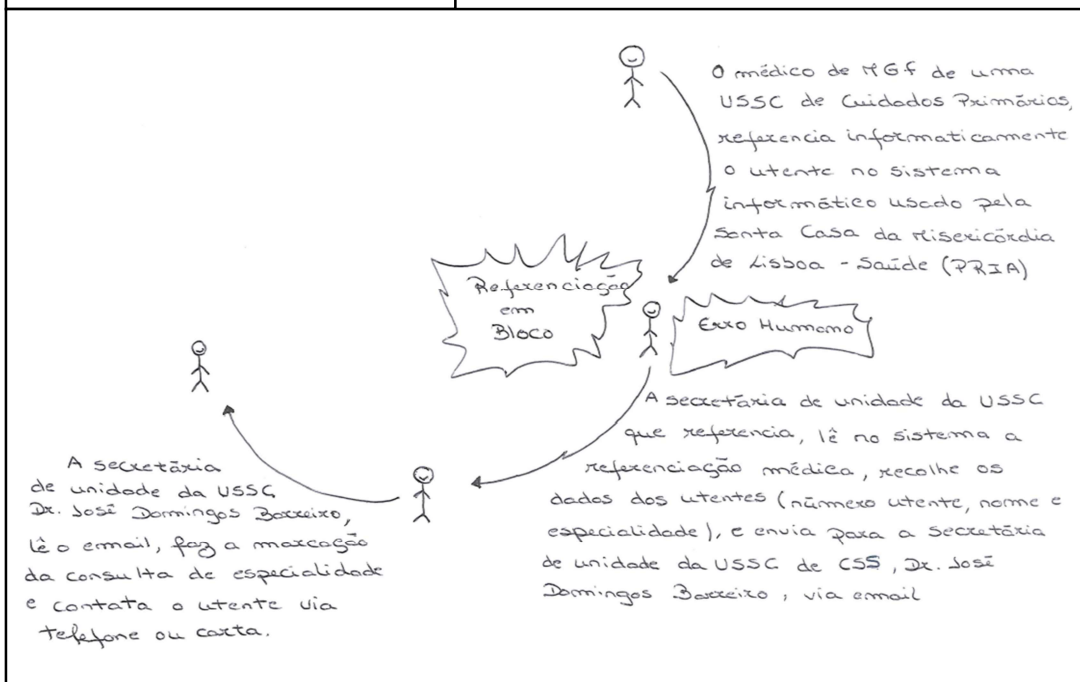 O médico de MGF de uma
USSC de Cuidados Primários,
referencia informaticamente
o utente no sistema
informático usado pela
Santa Casa da Misericórdia
de Lisboa - Saúde (PRIA)
Referenciação
em
Bloco
Erro Humano
A secretária de unidade da USSC
que referencia, lê no sistema a
referenciação médica, recolhe os
dados dos utentes (número utente, nome e
especialidade), e envia para a secretária
de unidade da USSC de CSS, Dr. José
Domingos Barreiro, via email
A secretária
de unidade da USSC
Dr. José Domingos Barreiro,
lê o email, faz a marcação
da consulta de especialidade
e contata o utente via
telefone ou carta.